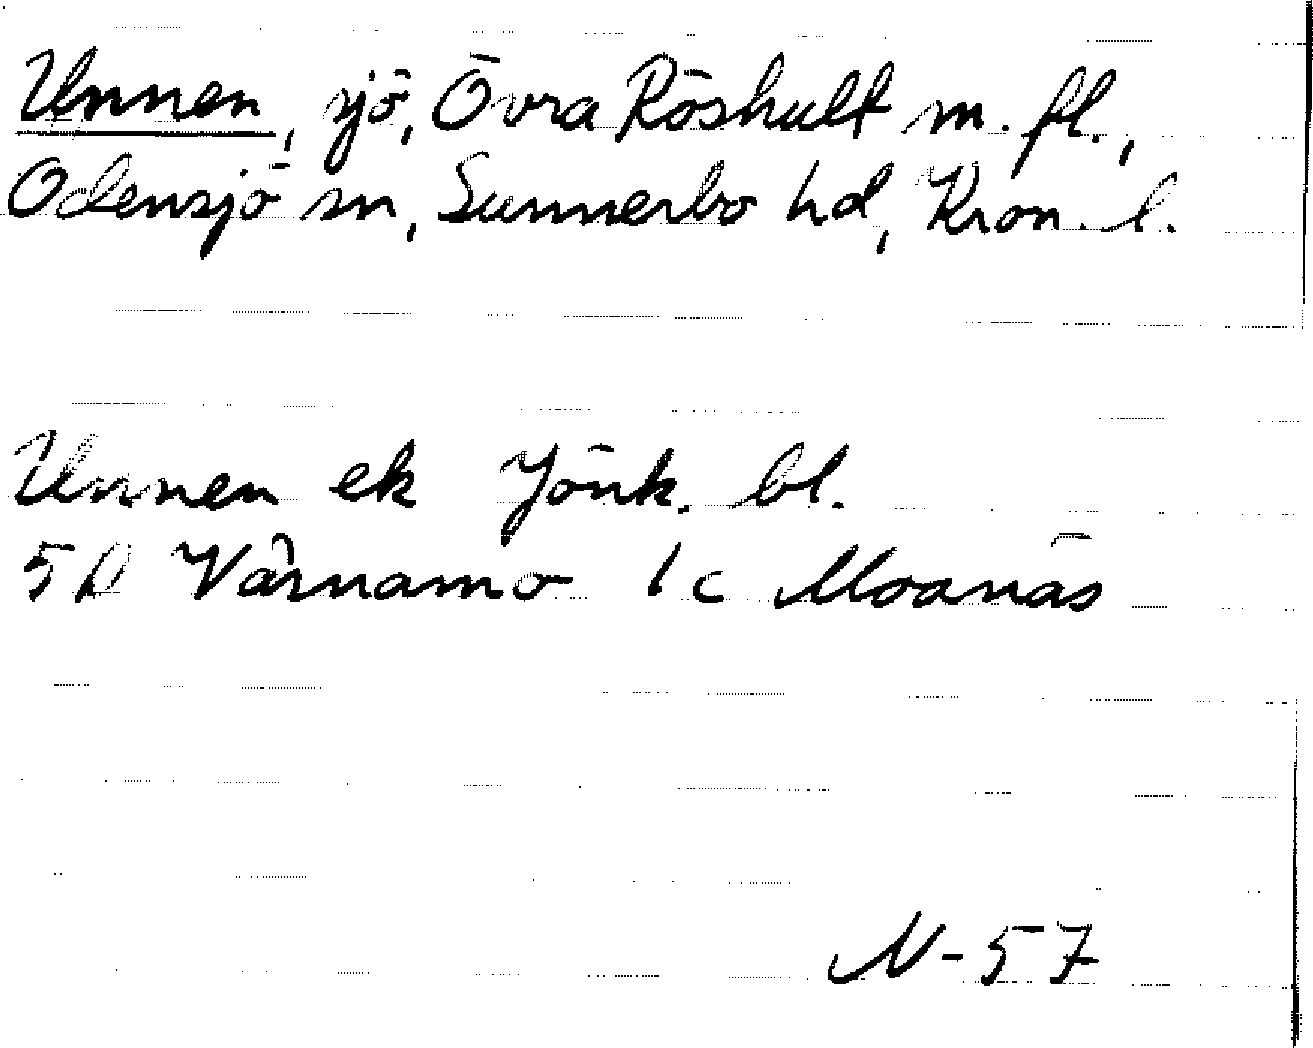 Unnen, sjö, Övra Röshult m. fl.,
Odensjö sn, Sunnerbo hd, Kron. l.
Unnen ek Jönk. bl.
5D Värnamo 1c Moanäs
N-57